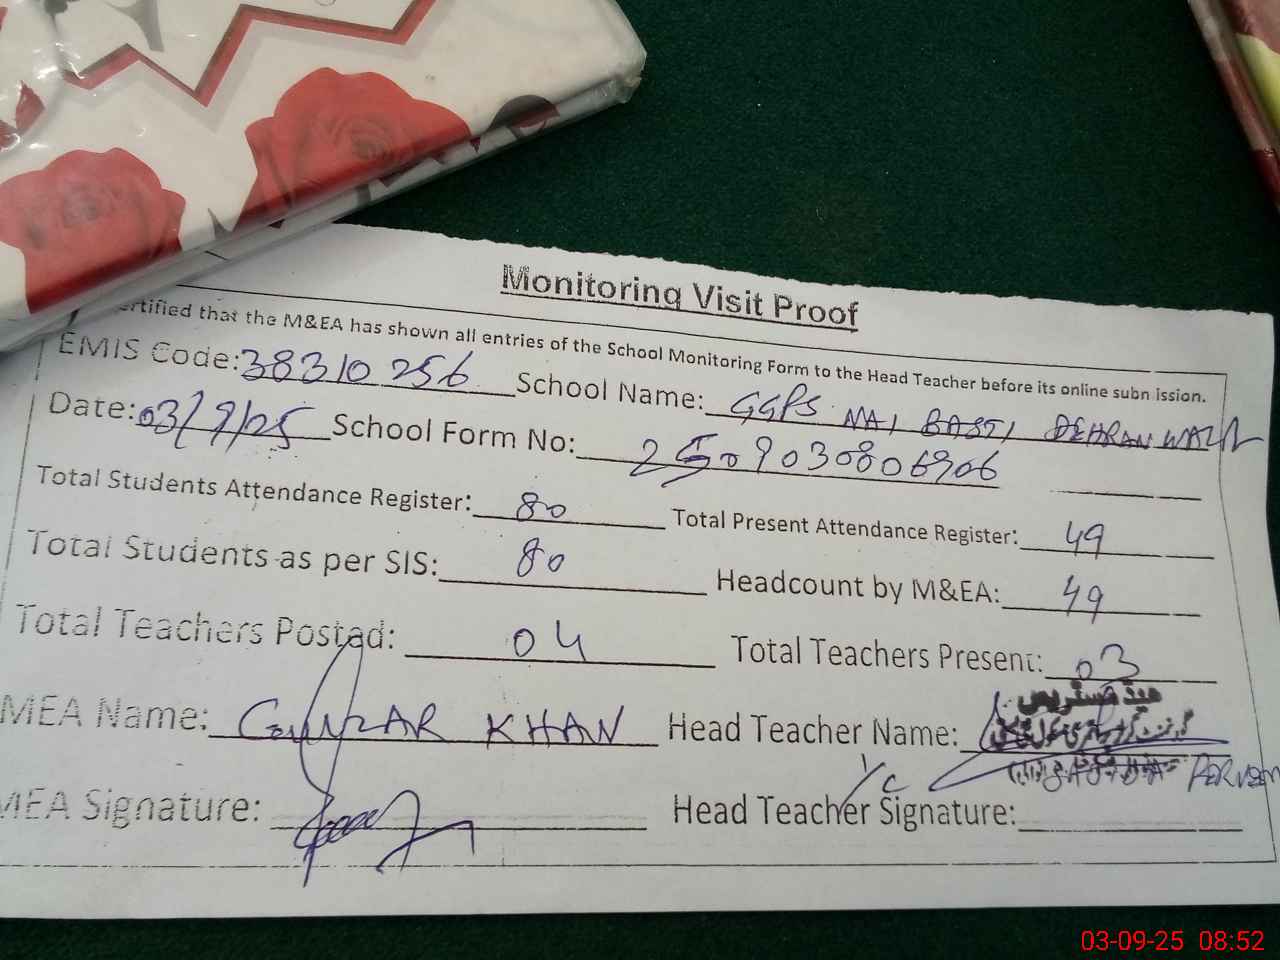 Monitoring Visit Proof
ertified that the M&EA has shown all entries of the School Monitoring Form to the Head Teacher before its online subn ission.
EMIS Code: 38310256 School Name: GGPS NAI BASTI DEHRANWALA
Date: 03/9/25 School Form No: 2509030806906
Total Students Attendance Register: 80 Total Present Attendance Register: 49
Total Students as per SIS: 80 Headcount by M&EA: 49
Total Teachers Posted: 04 Total Teachers Present: 03
MEA Name: KHAN Head Teacher Name:
ہیڈ مسٹریس
I/C PERVEEN
MEA Signature: Head Teacher Signature:
03-09-25 08:52